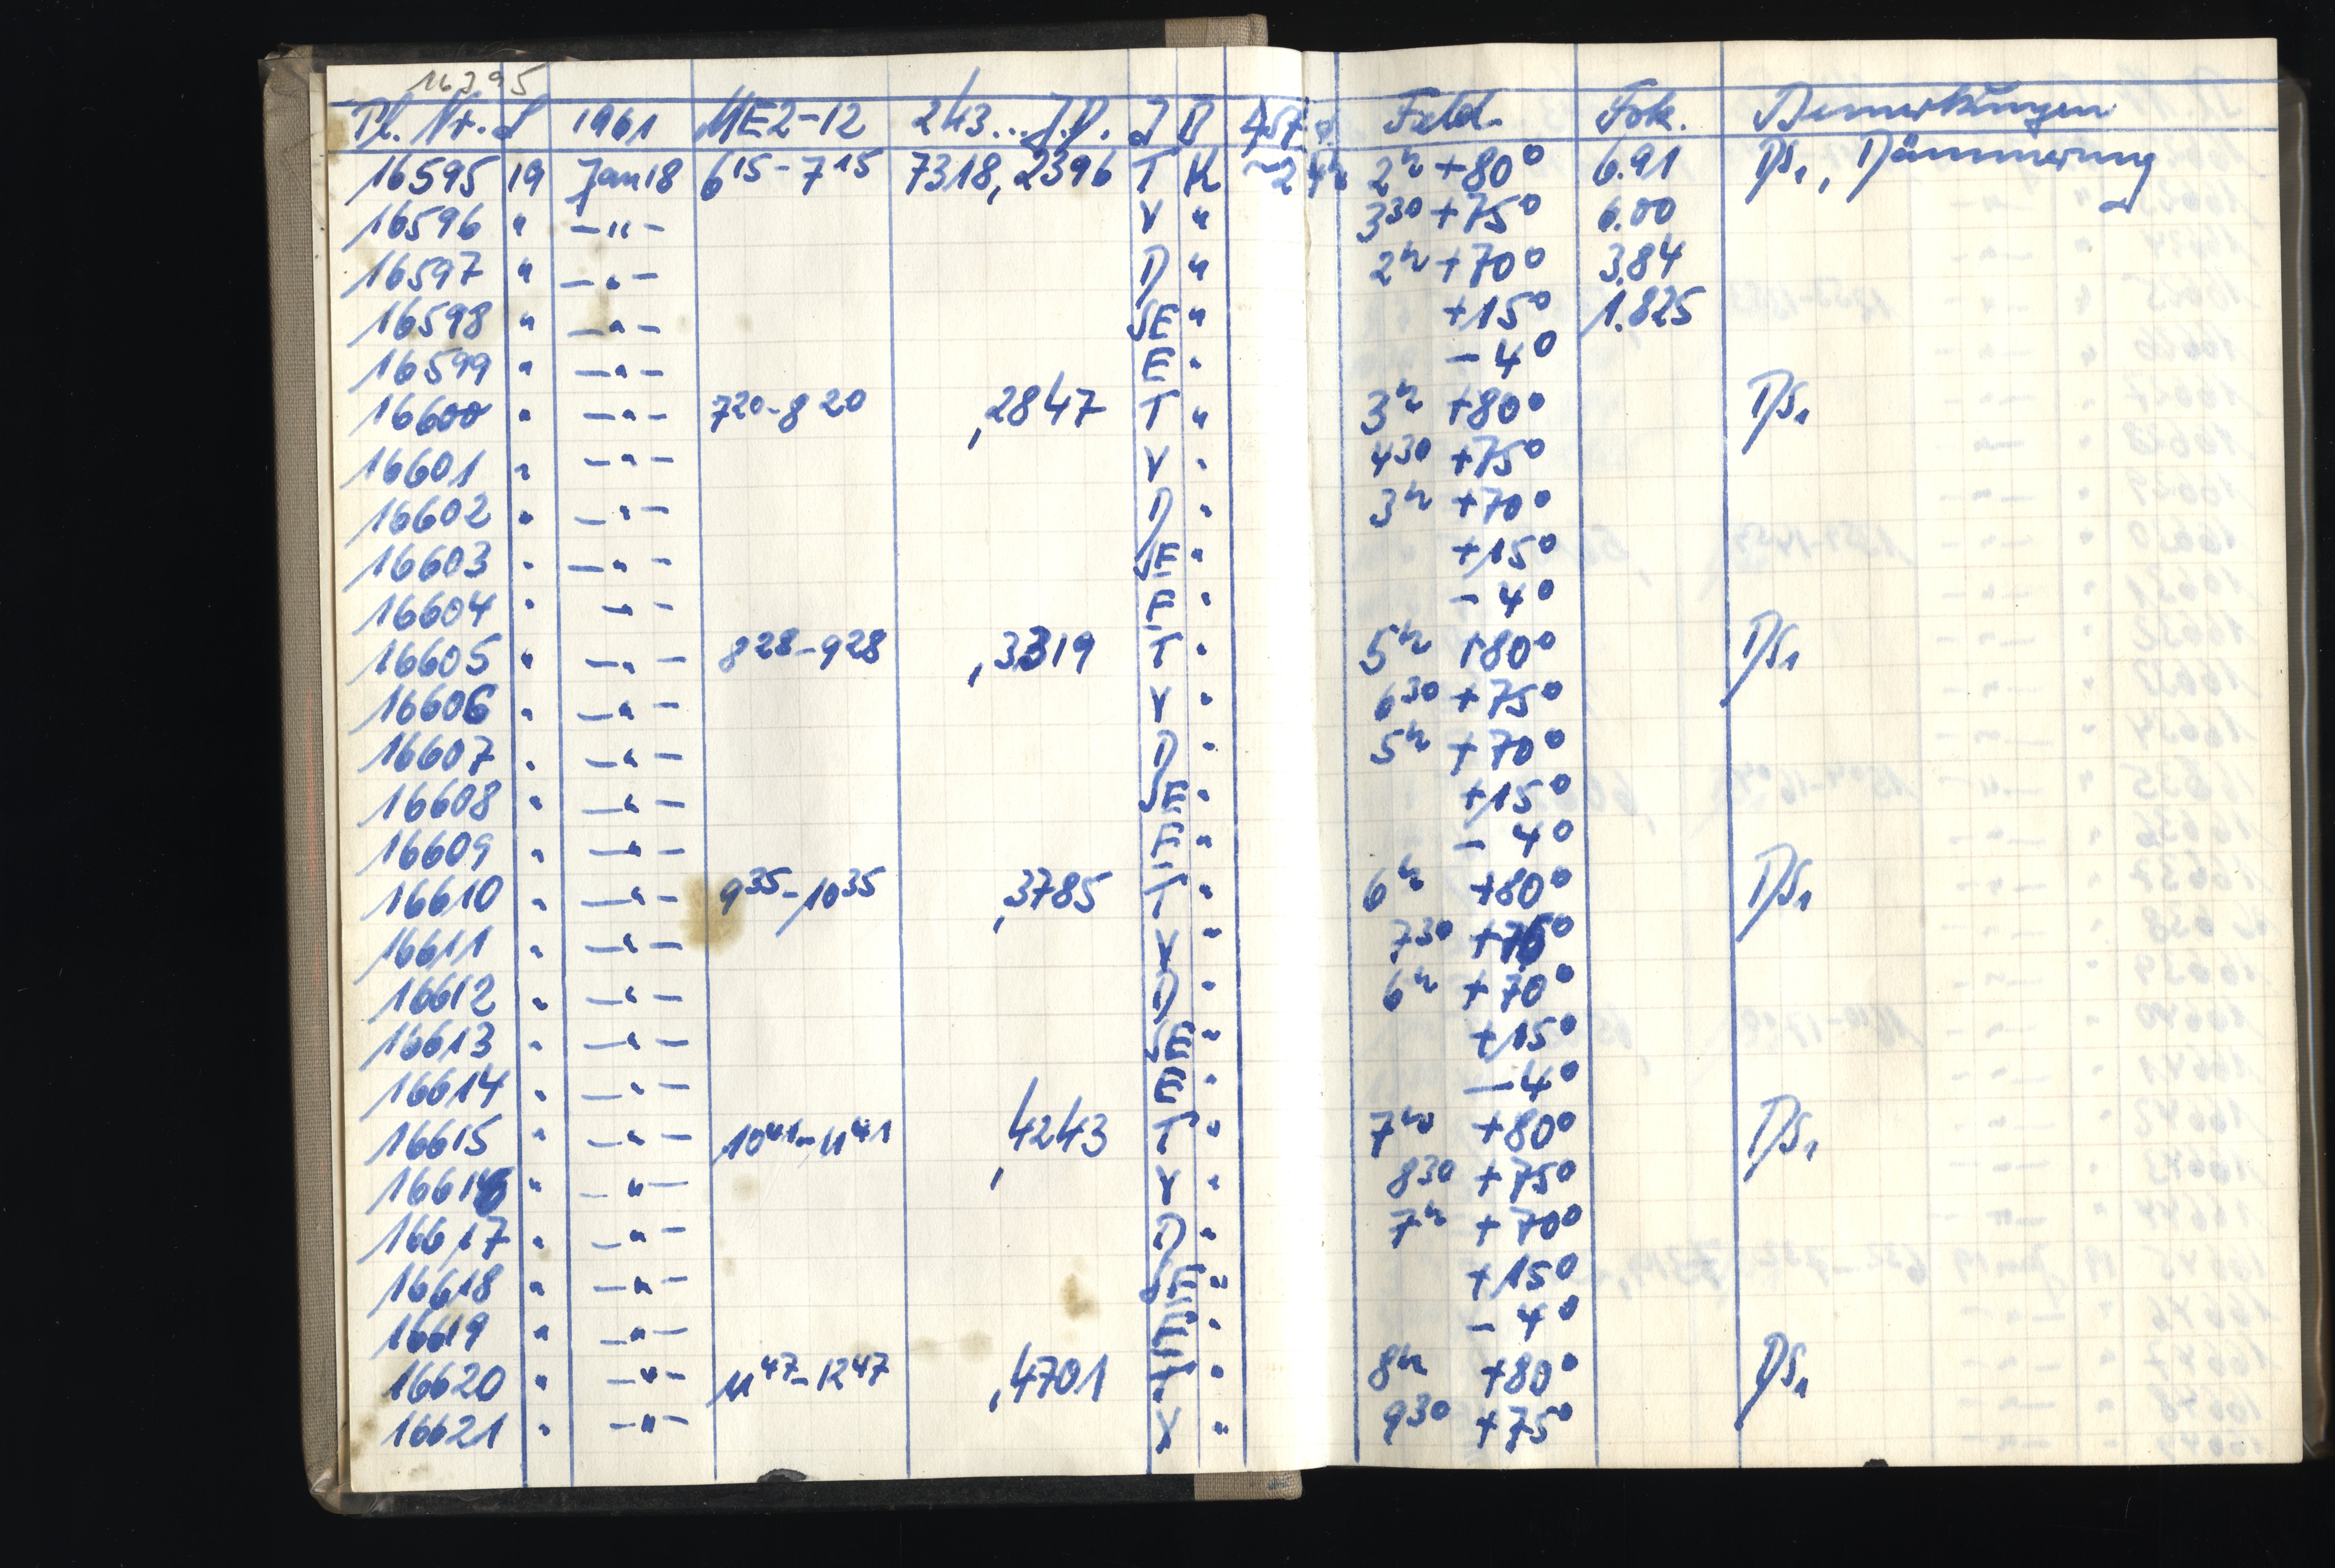 16395
Pl. Nr. S 1961 ME2-12 243... J.D. J B Feld. Fok. Bemerkungen
16595 19 Jan 18 6 15 - 7 15 7318,2396 T K ~2 2h +80° 6.91 DS1, Dämmerung
16596 " -"- V " 3 30 +75° 6.00
16597 " -"- D " 2h +70° 3.84
16598 " -"- SE " +15° 1.825
16599 " -"- E " -4°
16600 " -"- 7 20 - 8 20 ,2847 T " 3h +80° DS1
16601 " -"- V " 4 30 +75°
16602 " -"- D " 3h +70°
16603 " -"- SE " +15°
16604 " -"- E " -4°
16605 " -"- 8 28 - 9 28 ,3319 T " 5h +80° DS1
16606 " -"- V " 6 30 +75°
16607 " -"- D " 5h +70°
16608 " -"- SE " +15°
16609 " -"- E " -4°
16610 " -"- 9 35 - 10 35 ,3785 T " 6h +80° DS1
16611 " -"- V " 7 30 +75°
16612 " -"- D " 6h +70°
16613 " -"- SE " +15°
16614 " -"- E " -4°
16615 " -"- 10 41 - 11 41 ,4243 T " 7h +80° DS1
16616 " -"- V " 8 30 +75°
16617 " -"- D " 7h +70°
16618 " -"- SE " +15°
16619 " -"- E " -4°
16620 " -"- 11 47 - 12 47 ,4701 T " 8h +80° DS1
16621 " -"- V " 9 30 +75°